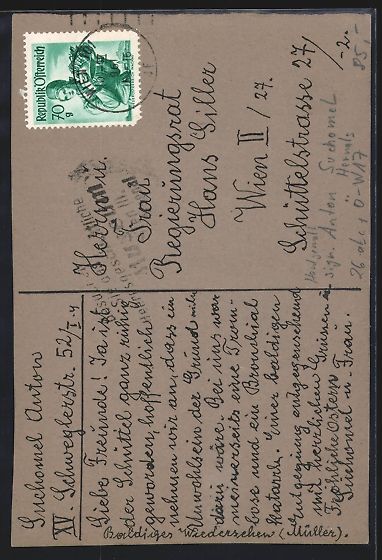 Suchomel Anton
XV Schweglerstr. 52/I-4
Liebe Freunde! Ja ist
der Schüttel ganz ruhig
geworden, hoffentlich
nehmen wir an, dass ein
Unwohlsein der Grund
darin wäre. Bei uns war
meinerseits eine Trom-
bose und ein Bronchial
Katarrh. Einer baldigen
Entgegnung entgegensehend
mit herzlichen Grüssen u.
Fröhliche Ostern
Suchomel u. Frau.
Baldiges Wiedersehen (Müller).
Republik Österreich
70 g
Herrn u.
Frau
Regierungsrat
Hans Siller
Wien II / 27.
Schüttelstrasse 27/
-2.
85.-
sign. Anton Suchomel
Hernals
Ö-W17